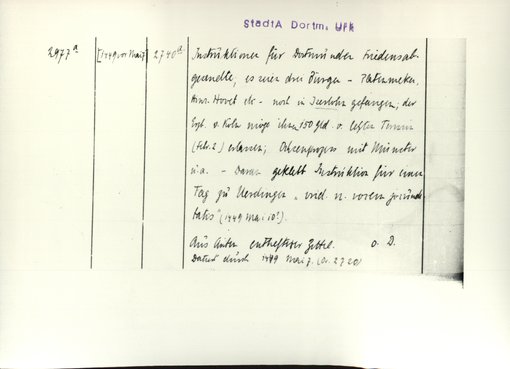 StadtA Dortm. Urk
2977a [1449 vor Mai 7] 2740a Instruktionen für Dortmunder Friedensab-
gesandte, es seien drei Bürger -
Hovet etc - noch in Iserlohn gefangen; der
Ezb. v. Köln möge ihnen 150 Gld. v. letzten Termin
(Febr. 2) erlassen; Ochsenprozess mit Münster
u.a. - Daran geklebt Instruktion für einen
Tag zu Uerdingen
(1449 Mai 10?).
Aus Akten entheftete Zettel. o. D.
Datiert durch 1449 Mai 7. (Nr. 2720)